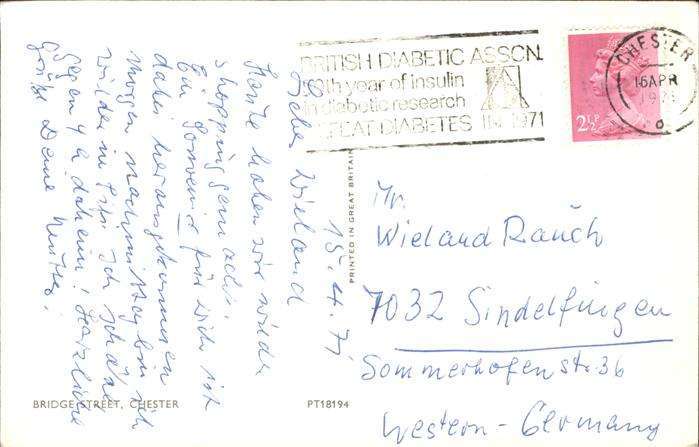 BRITISH DIABETIC ASSCN.
50th year of insulin
in diabetic research
DEFEAT DIABETES IN 1971
CHESTER
16 APR
1971
2½P
15.4.71
Lieber Wieland
Heute haben wir wieder
shopping gemacht.
Ein Souvenir für Dich ist
dabei herausgekommen
Morgen nachmittag bin ich
wieder in Ich schätze
gegen 4 h daheim! Herzliche
Grüße Deine Mutter.
PRINTED IN GREAT BRITAIN
Mr.
Wieland Rauch
7032 Sindelfingen
Sommerhofenstr. 36
Western-Germany
BRIDGE STREET, CHESTER
PT18194